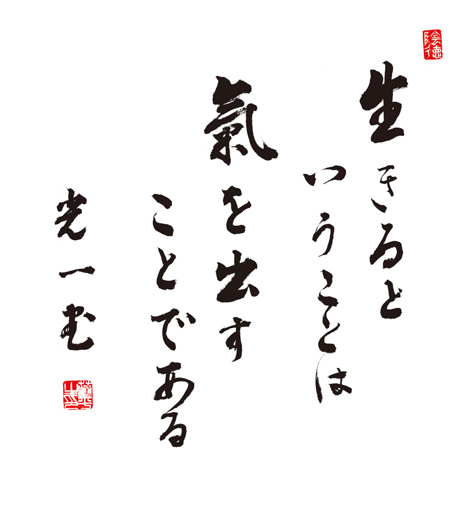 生きると
いうことは
氣を出す
ことである
光一書